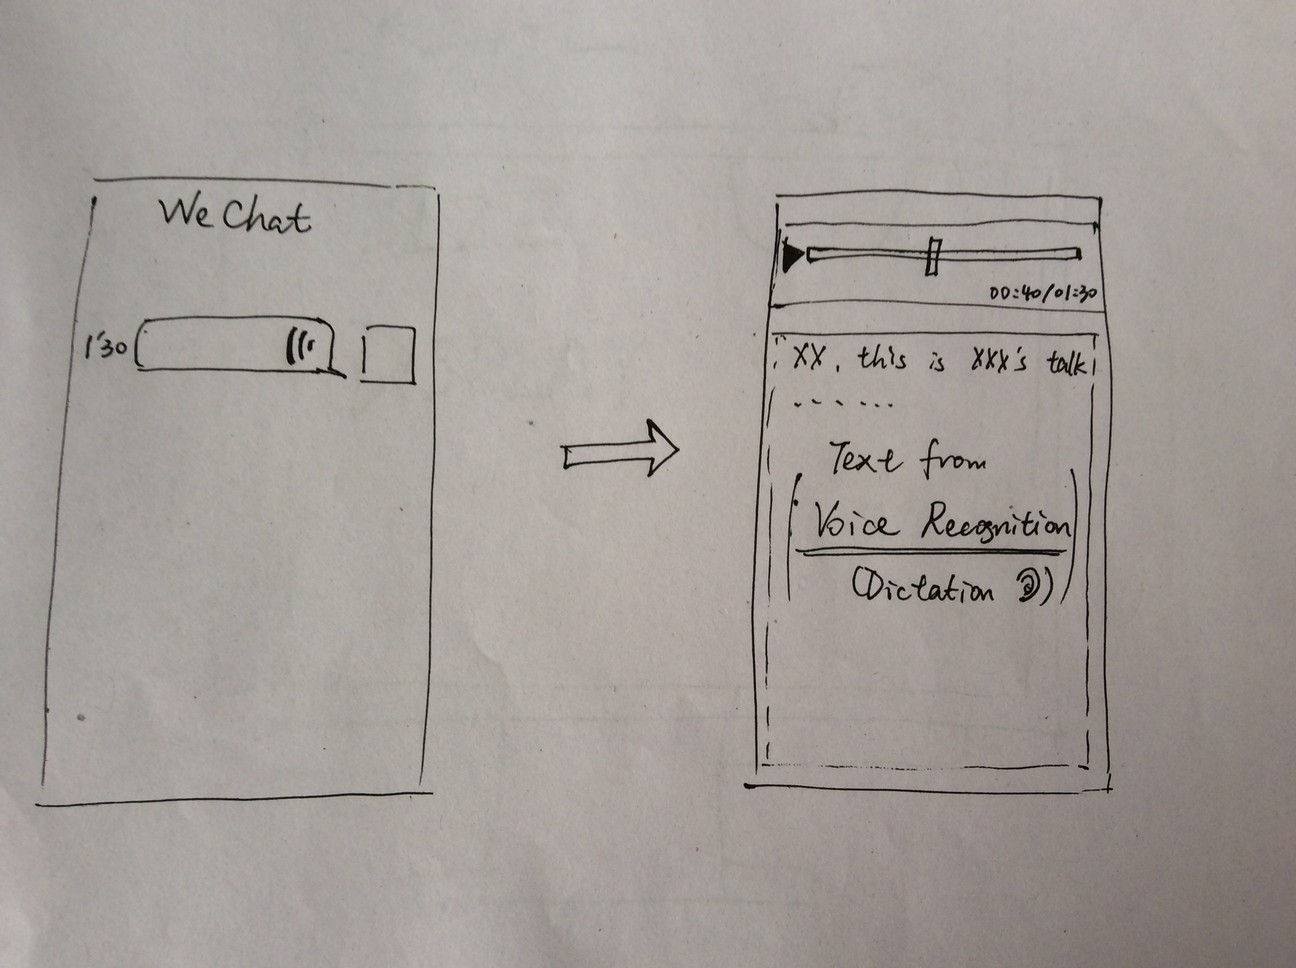 We Chat
1'30
00:40/01:30
XX, this is XXX's talk
......
Text from
Voice Recognition
(Dictation )